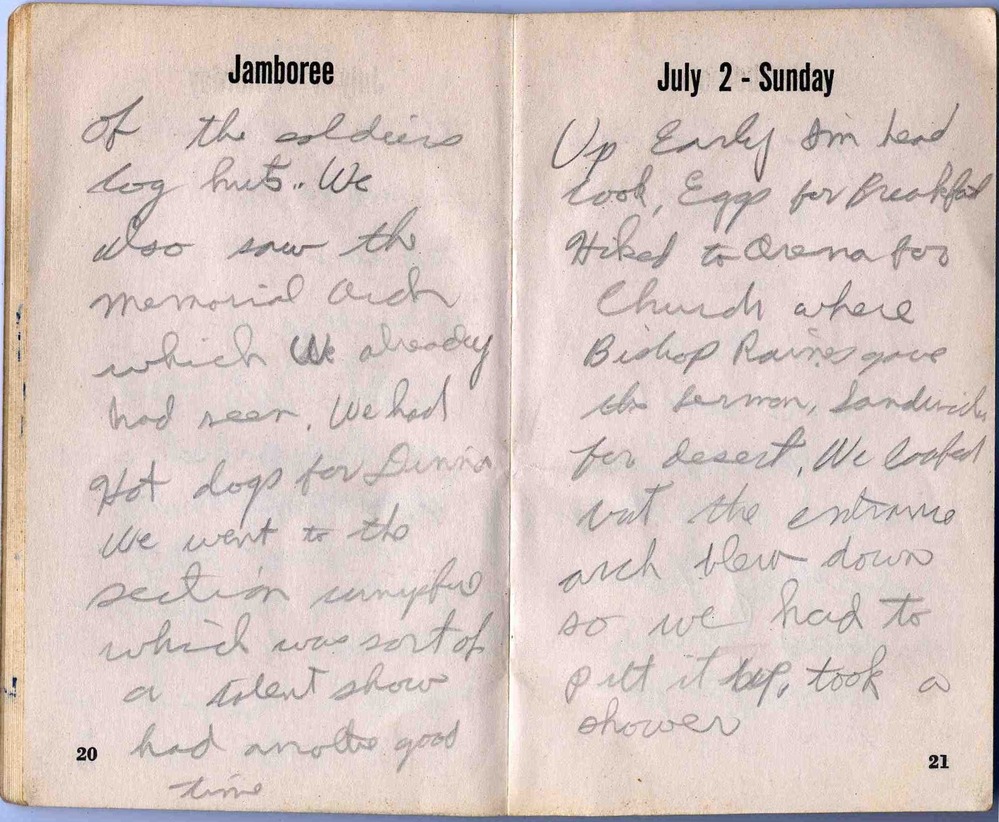 Jamboree
Of the soldiers
log huts. We
also saw the
Memorial Arch
which We already
had seen. We had
Hot dogs for Dinner
We went to the
section campfire
which was sort of
a talent show
had another good
time
20
July 2 - Sunday
Up Early Am head
cook, Eggs for Breakfast
Hiked to Arena for
Church where
Bishop Raines gave
the Sermon, Sandwich
for desert, We loafed
but the entrance
arch blew down
so we had to
putt it up, took a
shower
21